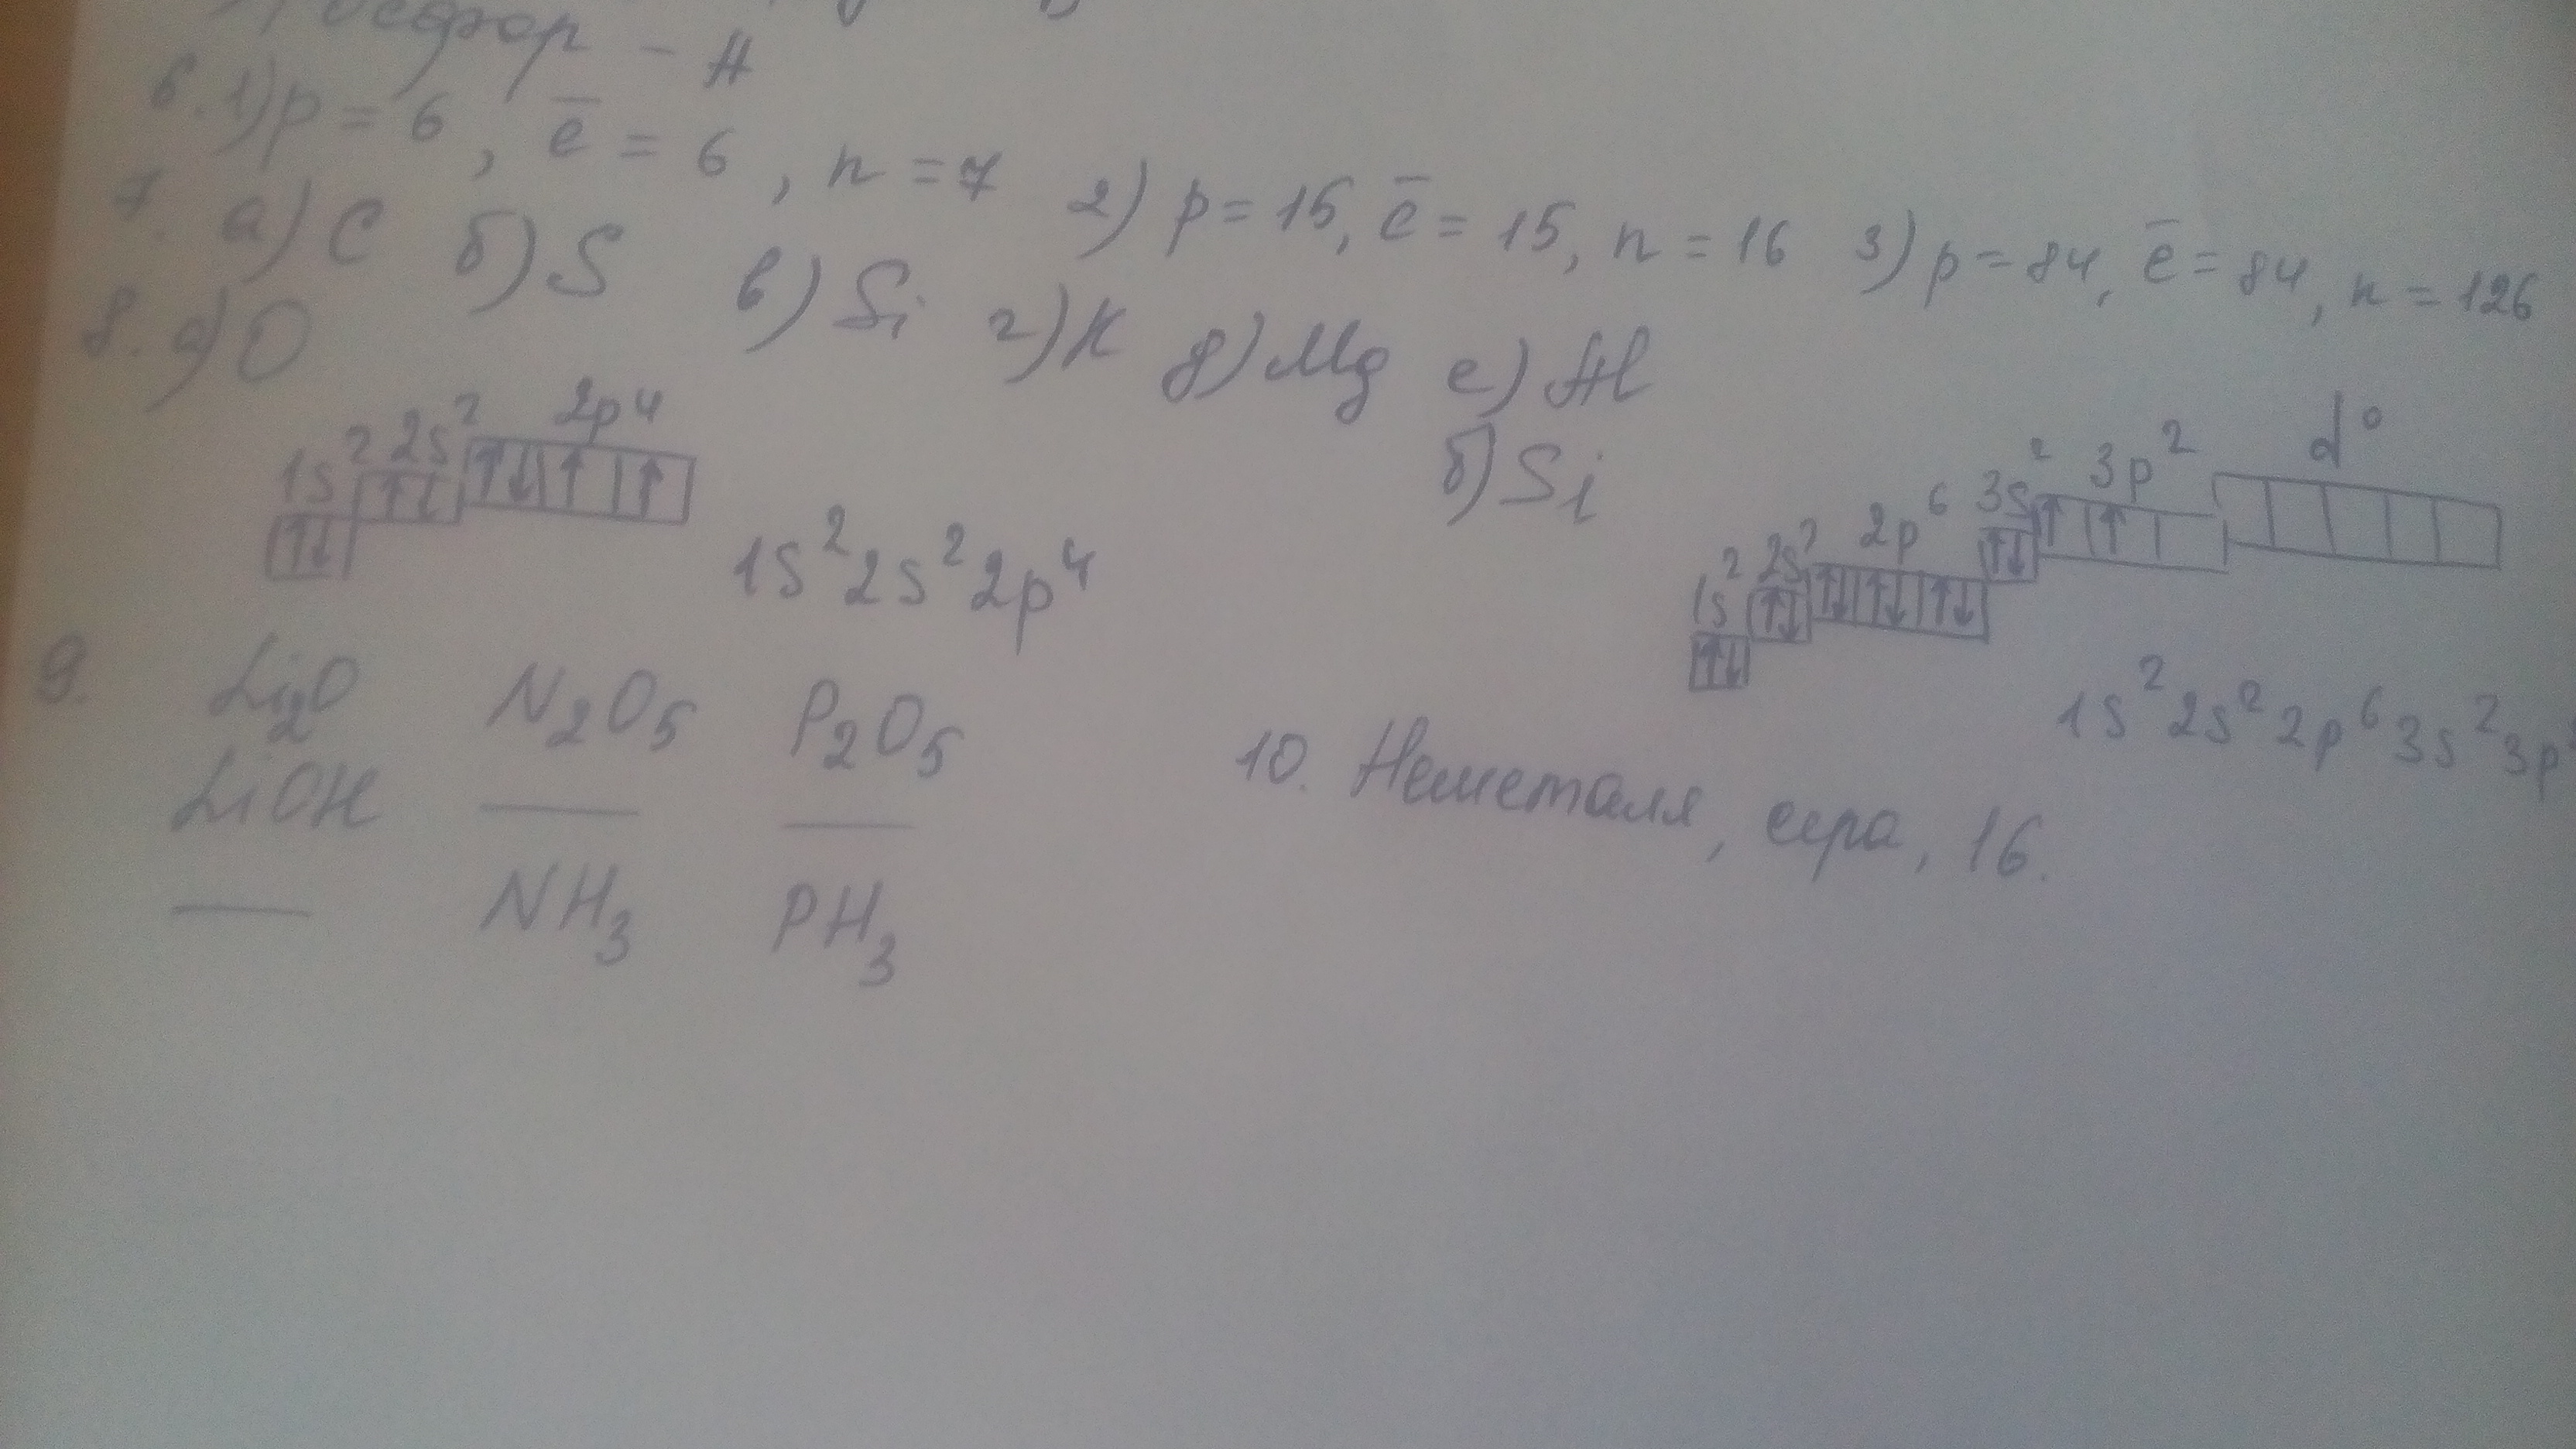 – А
6. 1) p = 6, e̅ = 6, n = 7 2) p = 15, e̅ = 15, n = 16 3) p = 84, e̅ = 84, n = 126
7. а) C б) S в) Si г) K д) Mg е) Al
8. а) O
1s² 2s² 2p⁴
↑↓ ↑↓ ↑↓ ↑ ↑
1s² 2s² 2p⁴
б) Si
1s² 2s² 2p⁶ 3s² 3p² d⁰
↑↓ ↑↓ ↑↓ ↑↓ ↑↓ ↑↓ ↑ ↑
1s² 2s² 2p⁶ 3s² 3p
9. Li₂O N₂O₅ P₂O₅
LiOH — —
— NH₃ PH₃
10. Неметалл, сера, 16.